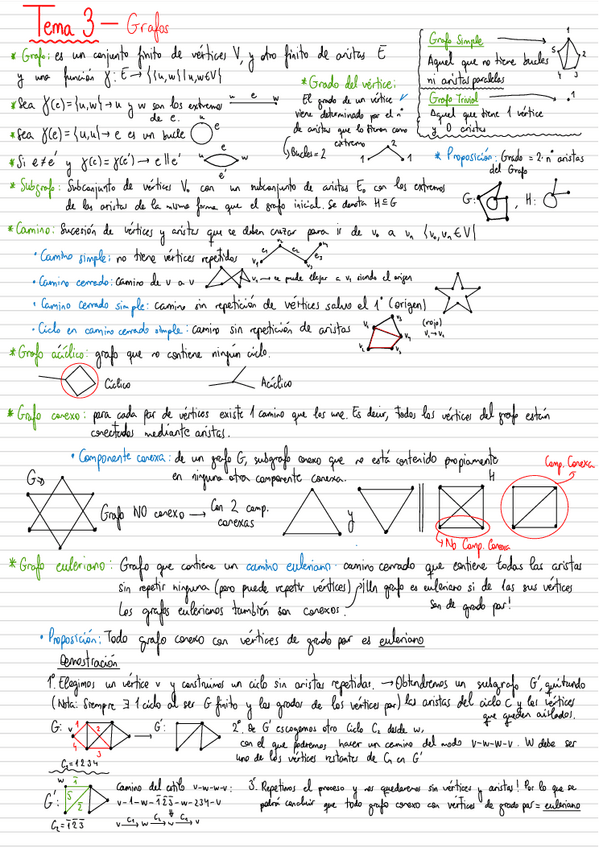 Tema 3 – Grafos
* Grafo: es un conjunto finito de vértices V, y otro finito de aristas E
y una función γ: E → {{u,w}|u,w∈V}
* Sea γ(e) = {u,w} → u y w son los extremos
de e.
u e w
* Sea γ(e) = {u,u} → e es un bucle
u
* Si e≠e' y γ(e) = γ(e') → e || e'
e
u w
e'
* Grado del vértice:
El grado de un vértice v
viene determinado por el nº
de aristas que lo tienen como
extremo
Bucles = 2
1 2 1
Grafo Simple
Aquel que no tiene bucles
ni aristas paralelas
1
2
3
4
5
Grafo Trivial
Aquel que tiene 1 vértice
y 0 aristas
1
* Proposición: Grado = 2·nº aristas
del Grafo
* Subgrafo: Subconjunto de vértices V₀ con un subconjunto de aristas E₀ con los extremos
de las aristas de la misma forma que el grafo inicial. Se denota H≤G
G: , H:
* Camino: Sucesión de vértices y aristas que se deben cruzar para ir de v₀ a vₙ {v₀,vₙ∈V}
· Camino simple: no tiene vértices repetidos
· Camino cerrado: camino de v a v
v₁ → se puede elegir a v₁ siendo el origen
· Camino cerrado simple: camino sin repetición de vértices salvo el 1º (origen)
· Ciclo en camino cerrado simple: camino sin repetición de aristas
(rojo)
v₁→v₄
* Grafo acíclico: grafo que no contiene ningún ciclo.
Cíclico
Acíclico
* Grafo conexo: para cada par de vértices existe 1 camino que los une. Es decir, todos los vértices del grafo están
conectados mediante aristas.
· Componente conexa: de un grafo G, subgrafo conexo que no está contenido propiamente
en ninguna otra componente conexa.
G→
Grafo NO conexo → Con 2 comp.
conexas
y
H
Comp. Conexa
No Comp. Conexa
* Grafo euleriano: Grafo que contiene un camino euleriano: camino cerrado que contiene todas las aristas
sin repetir ninguna (pero puede repetir vértices) ¡Un grafo es euleriano si de las sus vértices
son de grado par!
Los grafos eulerianos también son conexos.
· Proposición: Todo grafo conexo con vértices de grado par es euleriano
Demostración
1º. Elegimos un vértice v y construimos un ciclo sin aristas repetidas. → Obtendremos un subgrafo G', quitando
(Nota: Siempre ∃ 1 ciclo al ser G finito y los grados de los vértices par) las aristas del ciclo C y los vértices
que queden aislados.
G: v 1 2 3 4 → G':
C₁ = 1234
2º. De G' escogemos otro ciclo C₂ desde w,
con el que podremos hacer un camino del modo v-w-w-v. W debe ser
uno de los vértices restantes de C₁ en G'
w 1̄
G': 3̄ 2̄
C₂ = 1̄ 2̄ 3̄
Camino del estilo v-w-w-v:
v-1-w-1̄2̄3̄-w-234-v
v C₁→ w C₂→ w C₁→ v
3º. Repetimos el proceso y nos quedaremos sin vértices y aristas! Por lo que se
podrá concluir que todo grafo conexo con vértices de grado par = euleriano